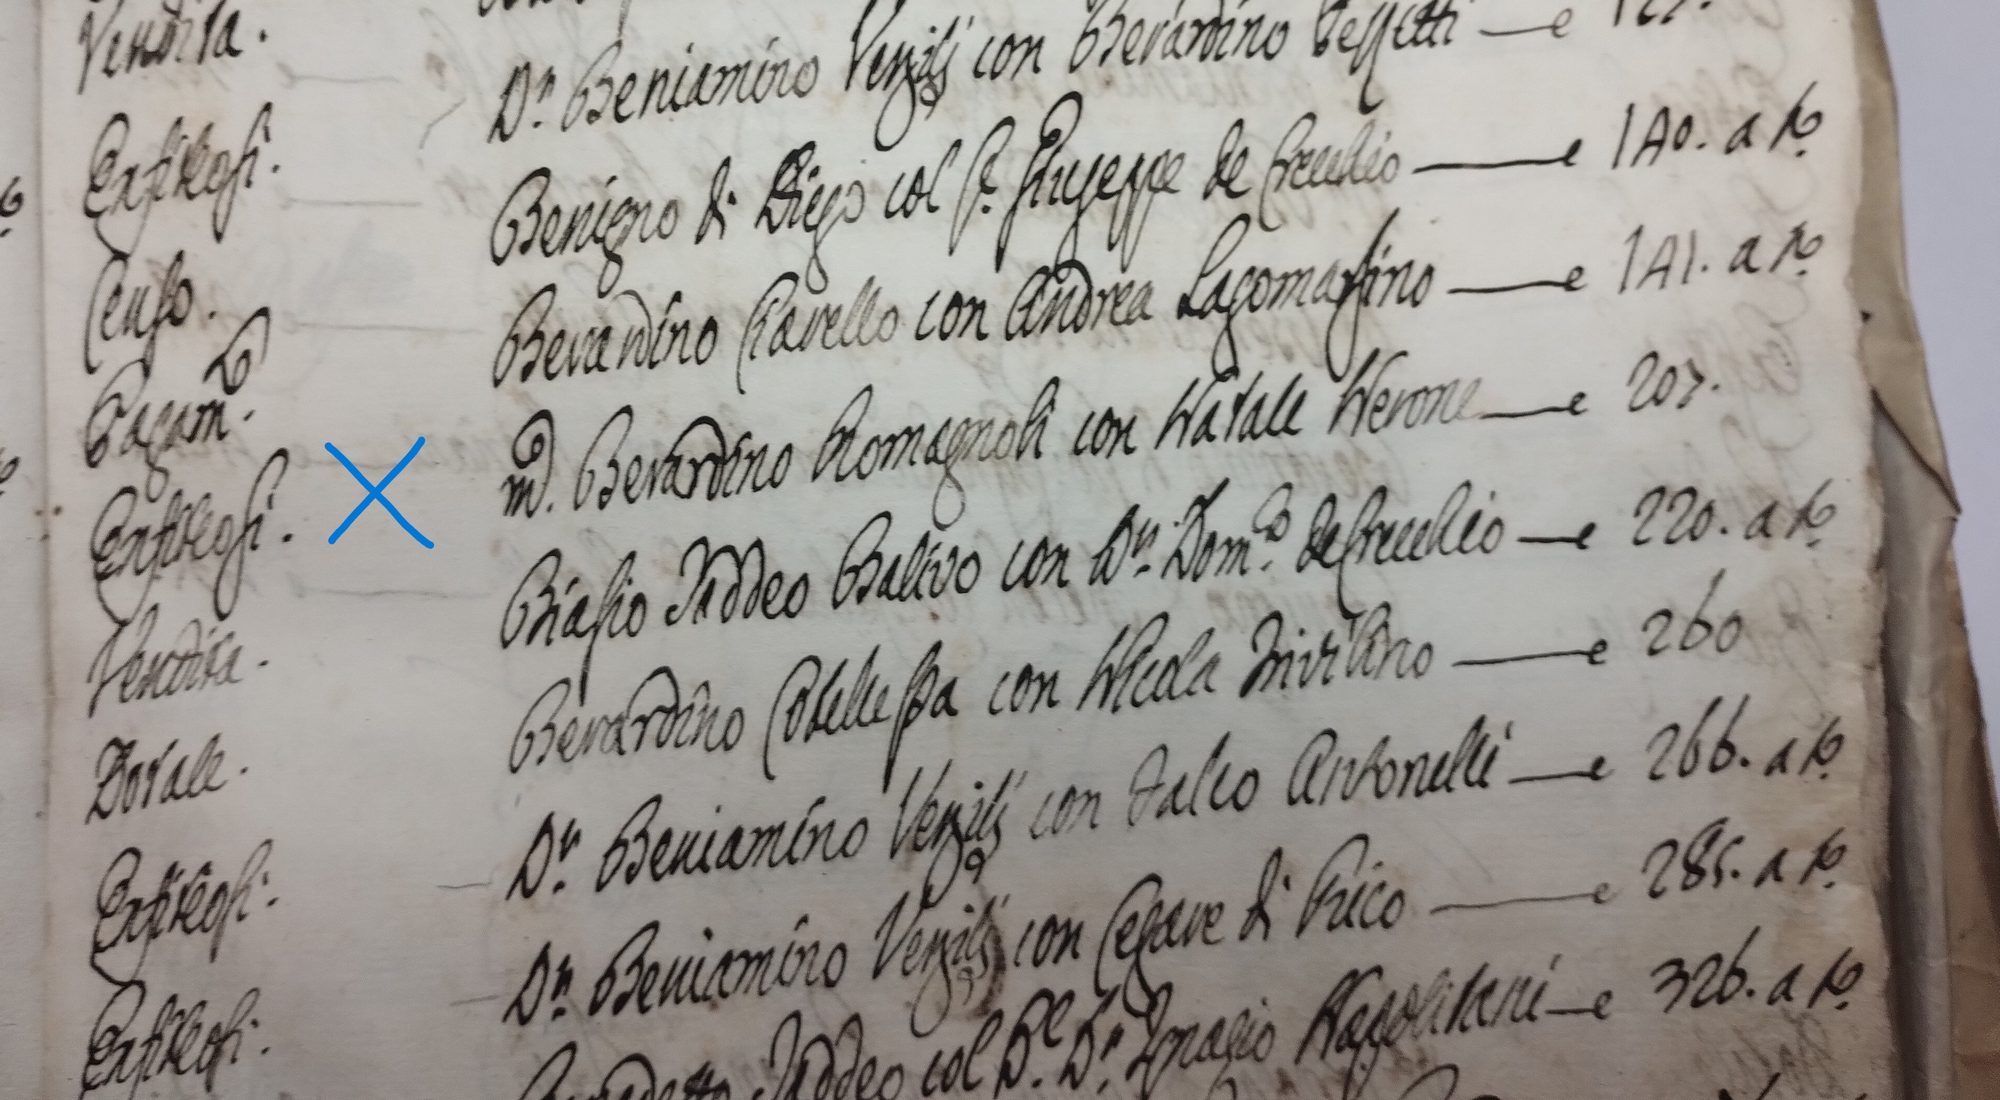 Vendita. Dn. Beniamino Vergilj con Berardino Tessetti — e
Enfiteosi. Benigno di Diego col S. Giuseppe de Crecchio — e 140. a to.
Censo. Berardino Ciavello con Andrea Lagomarsino — e 141. a to.
Pagam.to m.o Berardino Romagnoli con Natale Nerone — e 207.
Enfiteosi. Biasio Taddeo Balivo con Dn. Dom.co de Crecchio — e 220. a to.
Vendita. Berardino Cotellessa con Nicola Invitino — e 260
Dotale. Dn. Beniamino Vergilj con Falco Antonelli — e 266. a to.
Enfiteosi. Dn. Beniamino Vergilj con Cesare di Prico — e 285. a to.
Enfiteosi. Taddeo col Dn. Ignazio Napolitani — e 326. a to.